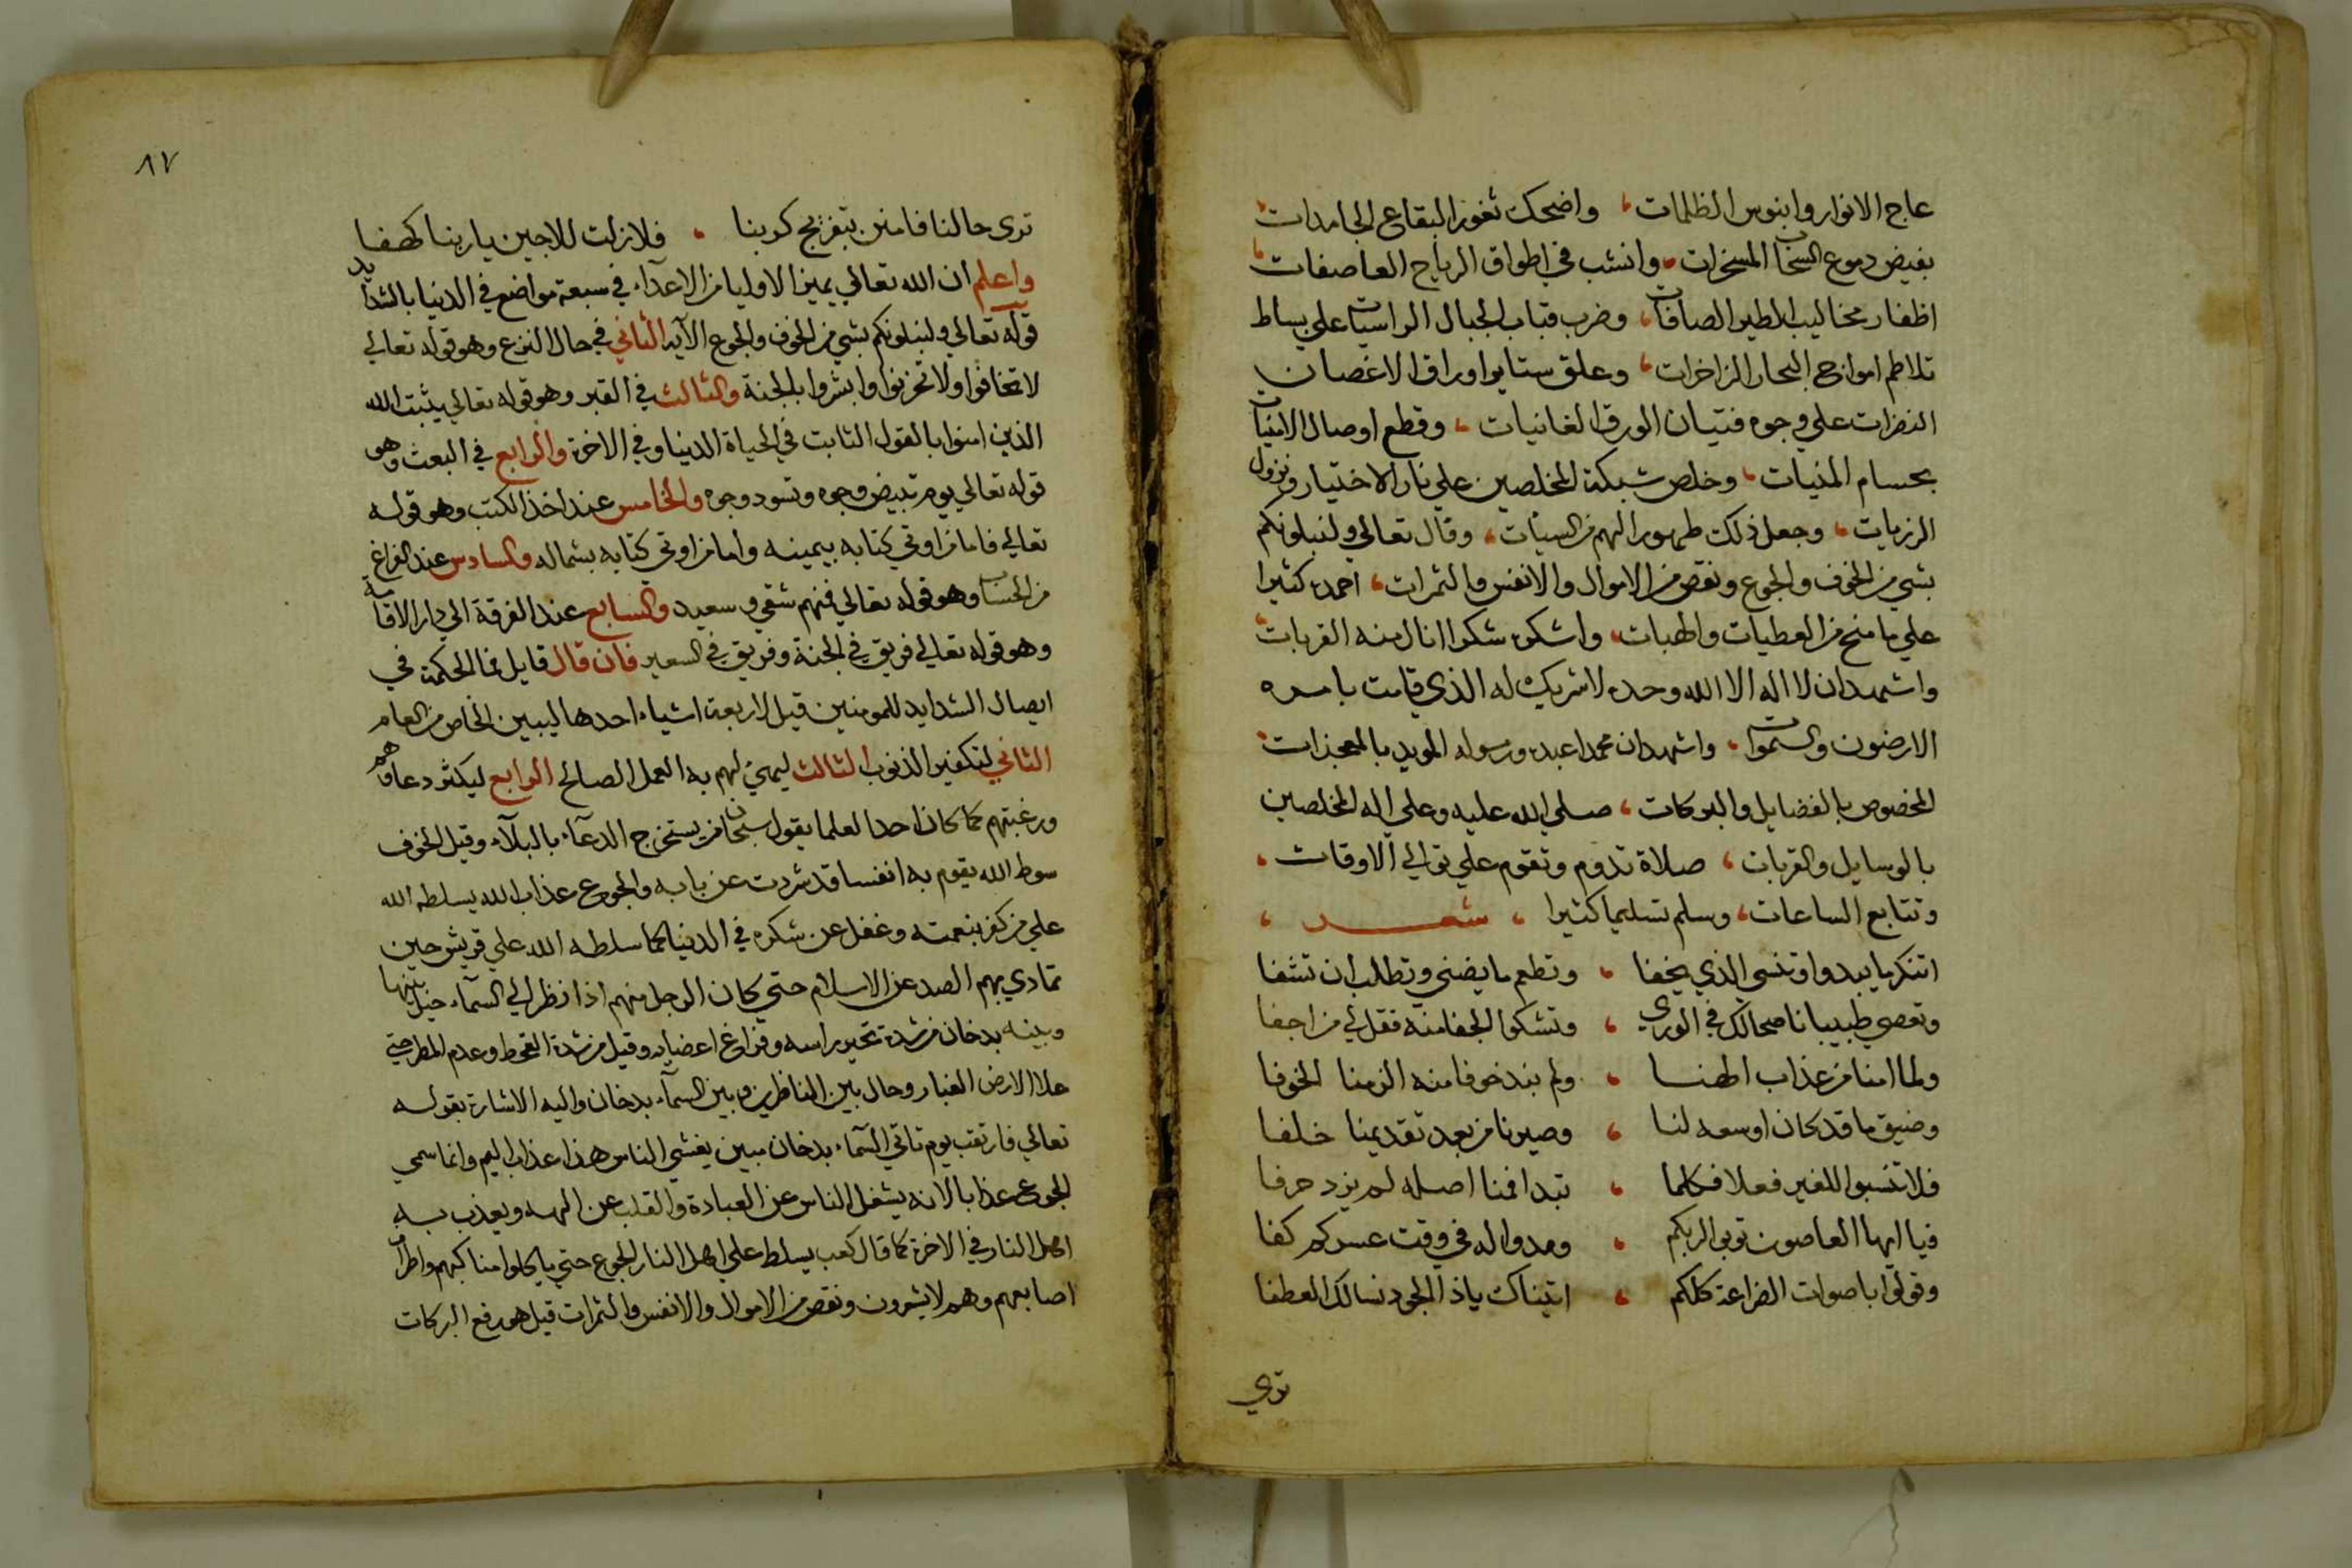 عاج الانوار وابنوس الظلمات، واضحك ثغور البقاع الجامدات،
بفيض دموع السحاب المسخرات، وانشب في اطواق الرياح العاصفات،
اظفار مخاليب الطير الصافات، وضرب قباب الجبال الراسيات علي بساط
تلاطم امواج البحار الزاخرات، وعلق ستاير اوراق الاغصان
النضرات علي وجوه فتيان الورق الغانيات، وقطع اوصال الامنيات
بحسام المنيات، وخلص شبكة المخلصين علي نار الاختيار ونزول
الرزيات، وجعل ذلك طهورا لهم من السيئات، وقال تعالي ولنبلونكم
بشي من الخوف والجوع ونقص من الاموال والانفس والثمرات، احمده كثيرا
علي ما منح من العطيات والهبات، واشكره شكرا انال منه القربات،
واشهد ان لا اله الا الله وحده لا شريك له الذي قامت بامره
الارضون والسموات، واشهد ان محمدا عبده ورسوله المويد بالمعجزات،
المخصوص بالفضايل والبركات، صلي الله عليه وعلي اله المخلصين
بالوسايل والقربات، صلاة تدوم وتقوم علي توالي الاوقات،
وتتابع الساعات، وسلم تسليما كثيرا، شعر،
اتنكر ما يبدوا وتنسي الذي يخفا، وتطعم ما يضني وتطلب ان تشفا
وتعصي طبيبا ناصحا لك في الوري، وتشكوا الجفا منه فقل لي من اجفا
ولما امنا من عذاب الهنا، ولم نبد خوفا منه الزمنا الخوفا
وضيق ما قد كان اوسعه لنا، وصيرنا من بعد تقديمنا خلفا
فلا تنسبوا للغير فعلا فكلما، تبدا فمنا اصله لم نزد حرفا
فيا ايها العاصون توبوا لربكم، ومدوا له في وقت عسركم كفا
وقولوا باصوات الضراعة كلكم، اتيناك ياذا الجود نسالك العطفا
تري
٨٧
تري حالنا فامنن بتفريج كربنا، فلا زلت للاجين يا ربنا كهفا
واعلم ان الله تعالي يميز الاوليا من الاعداء في سبعة مواضع في الدنيا بالشدايد
قوله تعالي ولنبلونكم بشي من الخوف والجوع الآية الثاني في حال النزع وهو قوله تعالي
لا تخافوا ولا تحزنوا وابشروا بالجنة والثالث في القبر وهو قوله تعالي يثبت الله
الذين امنوا بالقول الثابت في الحياة الدنيا وفي الاخرة والرابع في البعث وهو
قوله تعالي يوم تبيض وجوه وتسود وجوه والخامس عند اخذ الكتب وهو قوله
تعالي فاما من اوتي كتابه بيمينه واما من اوتي كتابه بشماله والسادس عند الفراغ
من الحساب وهو قوله تعالي فمنهم شقي وسعيد والسابع عند الفرقة الي دار الاقامة
وهو قوله تعالي فريق في الجنة وفريق في السعير فان قال قايل فما الحكمة في
ايصال الشدايد للمومنين قيل لاربعة اشياء احدها ليبين الخاص من العام
الثاني لتكفير الذنوب الثالث ليهيئ لهم به العمل الصالح الرابع ليكثر دعاوهم
ورغبتهم كما كان احد العلما يقول سبحان من يستخرج الدعآء بالبلآء وقيل الخوف
سوط الله يقوم به انفسا قد شردت عن بابه والجوع عذاب الله يسلطه الله
علي من كفر بنعمته وغفل عن شكره في الدنيا كما سلطه الله علي قريش حين
تمادي بهم الصد عن الاسلام حتي كان الرجل منهم اذا نظر الي السمآء خيل بينها
وبينه بدخان من شدة تحير راسه وفراغ اعضايه وقيل من شدة القحوط وعدم المطر حتي
علا الارض الغبار وحال بين الناظرين وبين السمآء بدخان واليه الاشارة بقوله
تعالي فارتقب يوم تاتي السمآء بدخان مبين يغشي الناس هذا عذاب اليم وانما سمي
الجوع عذابا لانه يشغل الناس عن العبادة والقلب عن الهه ويعذب به
اهل النار في الاخرة كما قال كعب يسلط علي اهل النار الجوع حتي ياكلوا مناكبهم واطراف
اصابعهم وهم لا يشعرون ونقص من الاموال والانفس والثمرات قيل هو رفع البركات